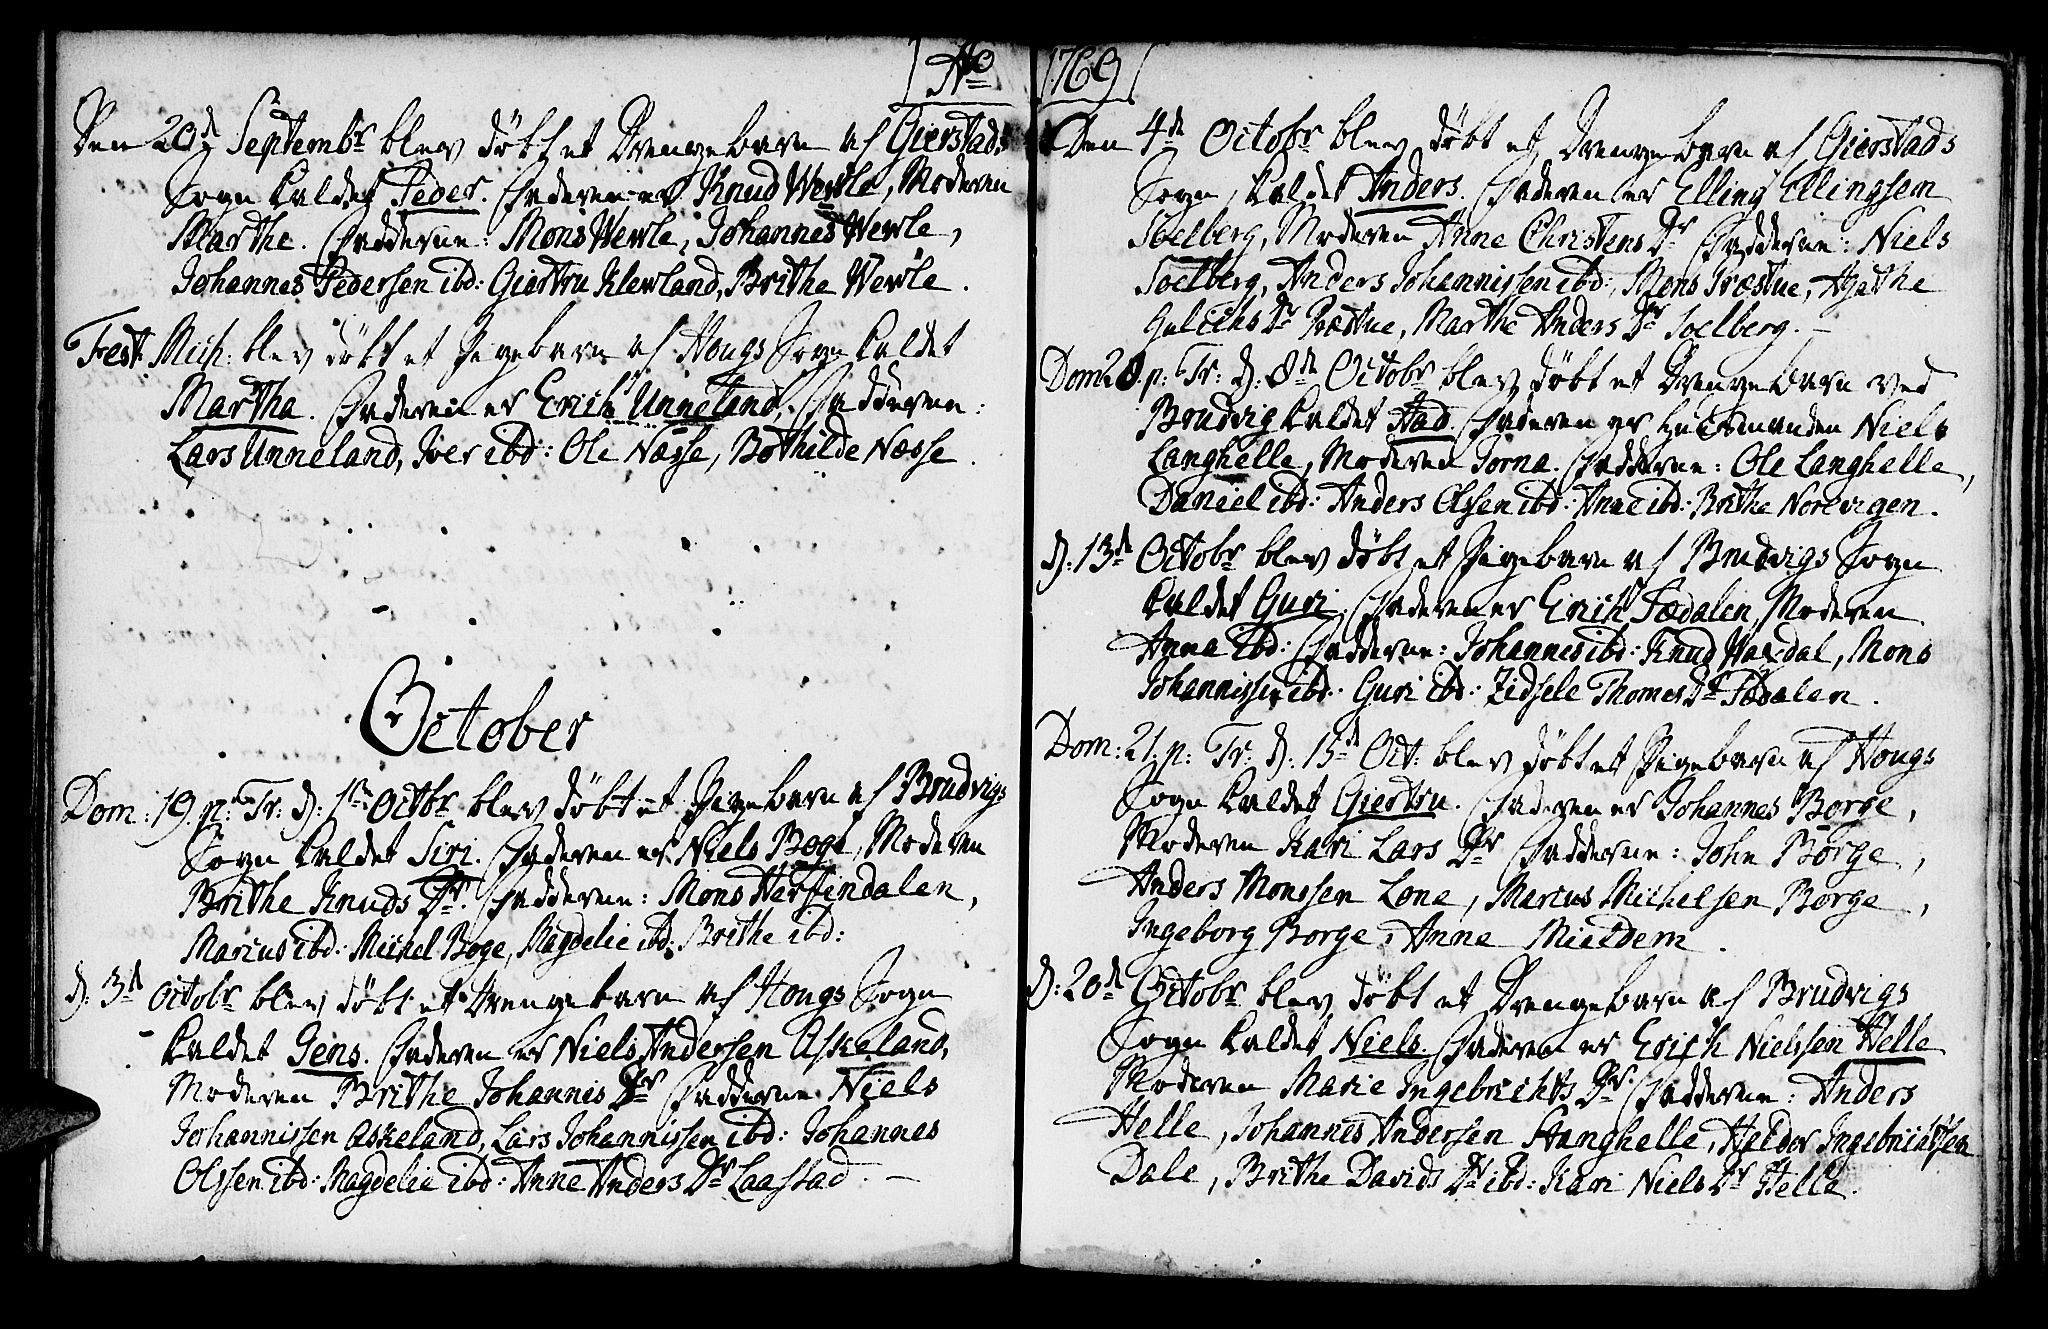 Ao
Den 20de Septembr blev døbt et Drengebarn af Gierstads
Sogn kaldet Peder. Faderen er Knud Wevle, Moderen
Marthe. Fadderne: Mons Wevle, Johannes Wevle,
Johannes Pedersen ibd: Giertru Klevland, Brithe Wevle.
Fest. Mich: blev døbt et Pigebarn af Hougs Sogn kaldet
Martha. Faderen er Erich Unneland. Fadderne:
Lars Unneland, Iver ibd: Ole Næsse, Bothilde Næsse.
October
Dom: 19. p: Tr: d: 1te Octobr blev døbt et Pigebarn af Brudvigs
Sogn kaldet Siri. Faderen er Niels Boge, Moderen
Brithe Knuds Dr. Fadderne: Mons Herfindalen,
Marcus ibd: Michel Boge, Magdelie ibd: Brithe ibd:
d: 3de Octobr blev døbt et Drengebarn af Hougs Sogn
kaldet Jens. Faderen er Niels Andersen Askeland,
Moderen Brithe Johannis Dr Fadderne Niels
Johannissen Askeland, Lars Johannissen ibd: Johannes
Olssen ibd: Magdelie ibd: Anne Anders Dr Laastad. —
1769
Den 4de Octobr blev døbt et Drengebarn af Gierstads
Sogn, kaldet Anders. Faderen er Elling Ellingsen
Soelberg, Moderen Anne Christens Dr Fadderne: Niels
Soelberg, Anders Johannissen ibd:, Mons Træstue, Agathe
Gulichs Dr Træstue, Marthe Anders Dr Soelberg. —
Dom: 20. p: Tr: d: 8de Octobr blev døbt et Drengebarn ved
Brudvig kaldet Aad. Faderen er Huusmanden Niels
Langhelle, Moderen Jorna. Fadderne: Ole Langhelle,
Daniel ibd: Anders Olssen ibd: Anne ibd: Brithe Norevigen.
d: 13de Octobr blev døbt et Pigebarn af Brudvigs Sogn
kaldet Guri, Faderen er Erich Fædalen, Moderen
Anna ibd: Fadderne: Johannes ibd: Knud Haxdal, Mons
Johannissen ibd: Guri ibd: Zidsele Thomes Dr Fædalen.
Dom: 21. p: Tr: d: 15de Oct: blev døbt et Pigebarn af Hougs
Sogn kaldet Giertru. Faderen er Johannes Borge,
Moderen Kari Lars Dr Fadderne: John Børge,
Anders Monssen Lone, Marcus Michelsen Borge,
Ingeborg Borge, Anne Mieldem.
d: 20de Octobr blev døbt et Drengebarn af Brudvigs
Sogn kaldet Niels. Faderen er Erich Nielssen Helle
Moderen Marie Ingebrichts Dr. Fadderne: Anders
Helle, Johannes Andersen Stanghelle, Haldor Ingebrichtsen
Dale, Brithe Davids Dr ibd: Kari Niels Dr Helle.